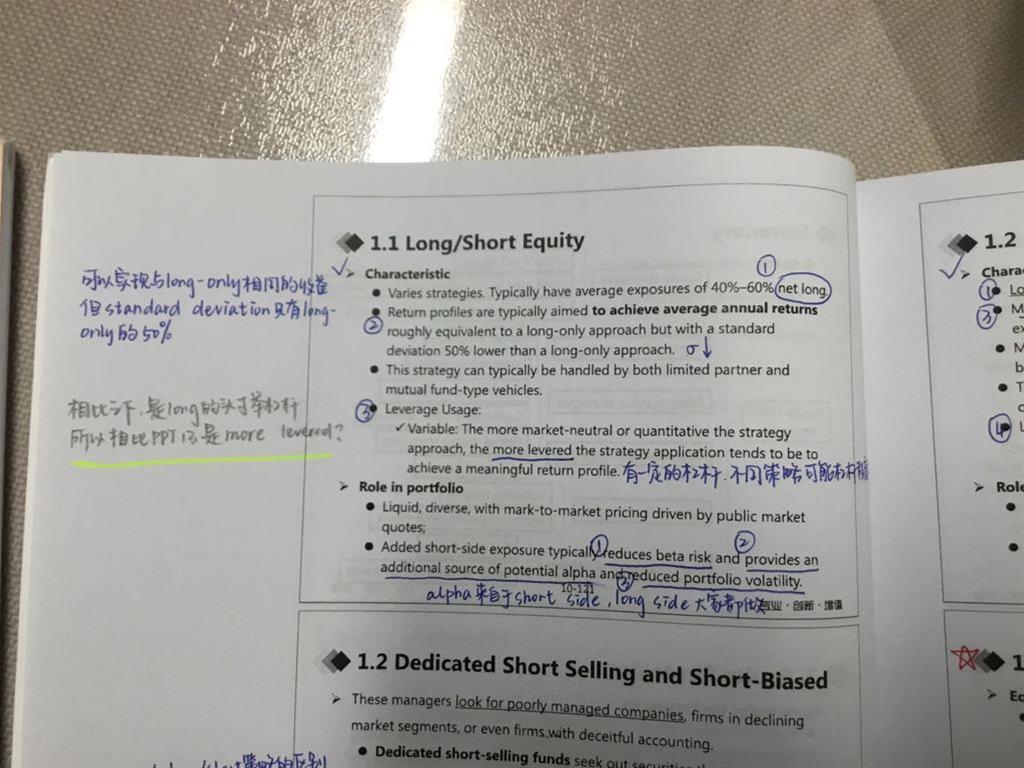 1.1 Long/Short Equity
Characteristic
①
Varies strategies. Typically have average exposures of 40%-60% net long.
② Return profiles are typically aimed to achieve average annual returns
roughly equivalent to a long-only approach but with a standard
deviation 50% lower than a long-only approach. σ↓
This strategy can typically be handled by both limited partner and
mutual fund-type vehicles.
③ Leverage Usage:
✓ Variable: The more market-neutral or quantitative the strategy
approach, the more levered the strategy application tends to be to
achieve a meaningful return profile. 有一定的杠杆.不同策略可能杠杆
Role in portfolio
Liquid, diverse, with mark-to-market pricing driven by public market
quotes;
Added short-side exposure typically ① reduces beta risk and ② provides an
additional source of potential alpha and ③ reduced portfolio volatility.
10-121
alpha来自于short side, long side大家都做
专业·创新·增值
可以实现与long-only相同的收益
但standard deviation只有long-
only的50%
相比之下,是long的头寸举杠杆
所以相比PPT 13是more levered?
1.2 Dedicated Short Selling and Short-Biased
These managers look for poorly managed companies, firms in declining
market segments, or even firms with deceitful accounting.
Dedicated short-selling funds seek out
策略的区别
1.2
Chara
①
③ M
④ L
Role
1
Ec